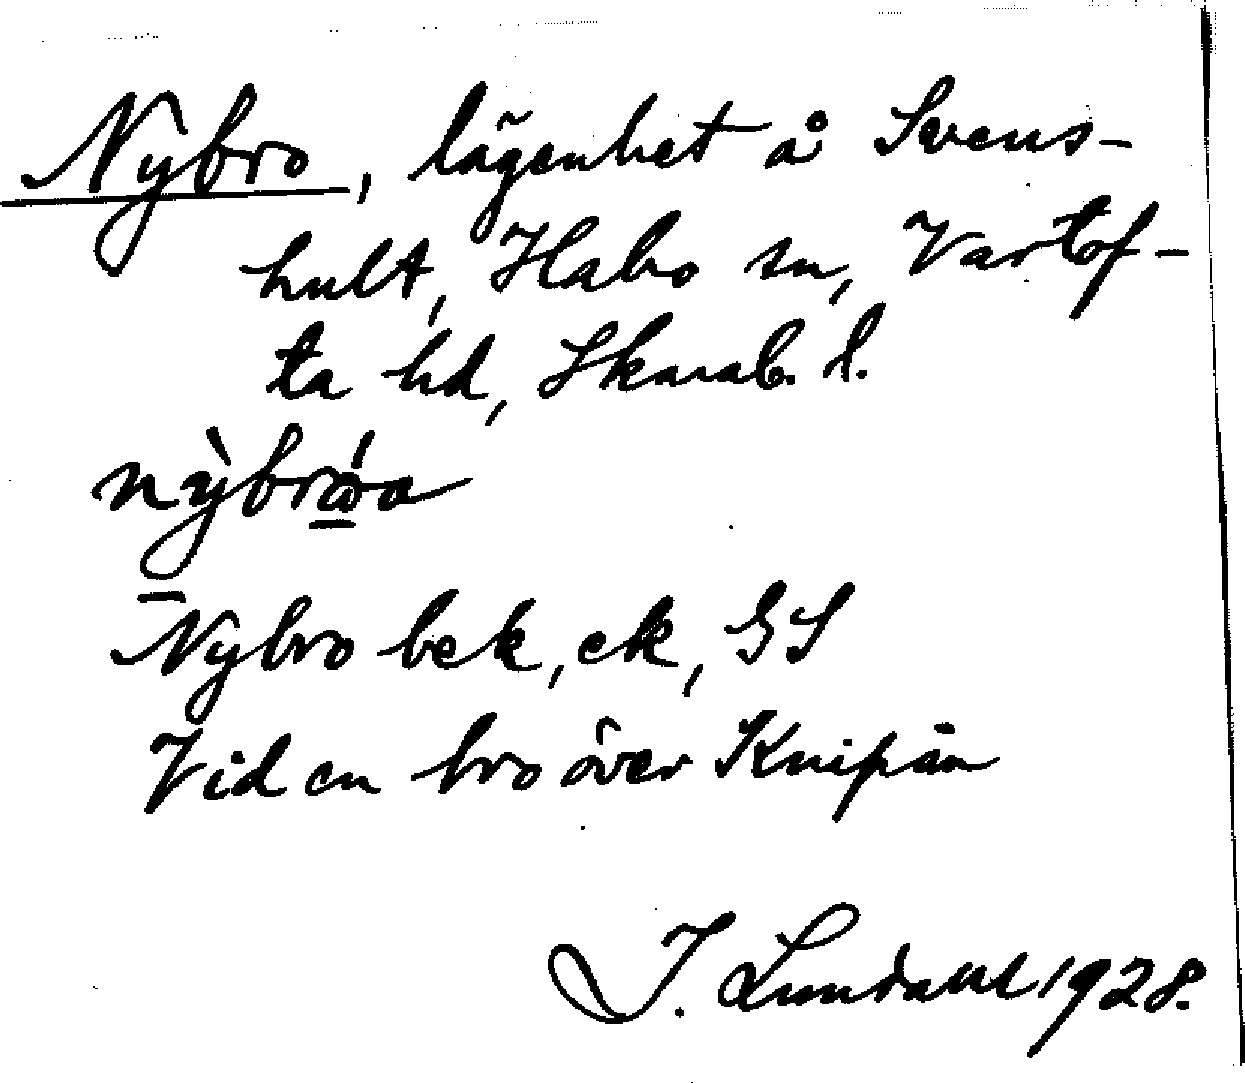 Nybro, lägenhet å Svens-
hult, Habo sn, Vartof-
ta hd, Skarab. l.
Nybro bek, ek, GS
Vid en bro över Knipån
I. Lundahl 1928.